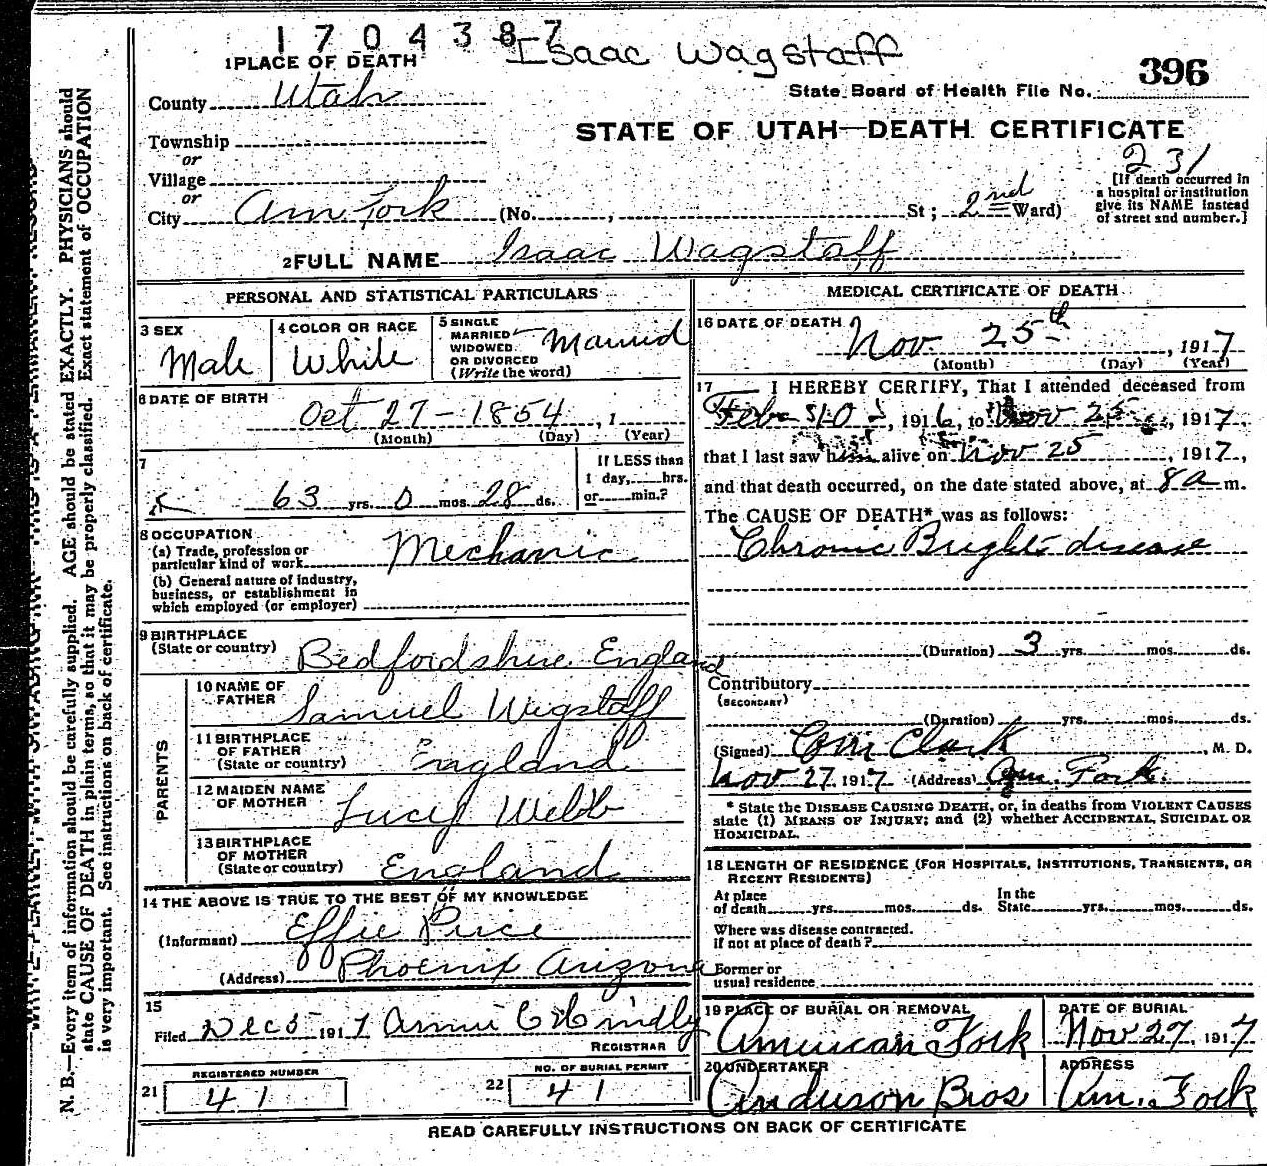 1704387
Isaac Wagstaff
1 PLACE OF DEATH
396
County Utah
State Board of Health File No.
Township
STATE OF UTAH—DEATH CERTIFICATE
or
231
Village
or
[If death occurred in
a hospital or institution
give its NAME instead
of street and number.]
City Am Fork (No. , St ; 2nd Ward)
2 FULL NAME Isaac Wagstaff
PERSONAL AND STATISTICAL PARTICULARS
3 SEX
Male
4 COLOR OR RACE
White
5 SINGLE
MARRIED
WIDOWED
OR DIVORCED
(Write the word)
Married
6 DATE OF BIRTH
Oct 27 - 1854 , 1
(Month) (Day) (Year)
7
63 yrs. 0 mos. 28 ds.
If LESS than
1 day, hrs.
or min.?
8 OCCUPATION
(a) Trade, profession or
particular kind of work
Mechanic
(b) General nature of industry,
business, or establishment in
which employed (or employer)
9 BIRTHPLACE
(State or country) Bedfordshire England
PARENTS
10 NAME OF
FATHER
Samuel Wigstaff
11 BIRTHPLACE
OF FATHER
(State or country) England
12 MAIDEN NAME
OF MOTHER
Lucy Webb
13 BIRTHPLACE
OF MOTHER
(State or country) England
14 THE ABOVE IS TRUE TO THE BEST OF MY KNOWLEDGE
(Informant) Effie Price
(Address) Phoenix Arizona
15
Filed Dec 5 1917 Annie
REGISTRAR
REGISTERED NUMBER
21 41
NO. OF BURIAL PERMIT
22 41
MEDICAL CERTIFICATE OF DEATH
16 DATE OF DEATH
Nov. 25th , 1917
(Month) (Day) (Year)
17 I HEREBY CERTIFY, That I attended deceased from
Feb , 1916, to Nov 25 , 1917,
that I last saw him alive on Nov 25 , 1917,
and that death occurred, on the date stated above, at 8a m.
The CAUSE OF DEATH* was as follows:
Chronic Brights disease
(Duration) 3 yrs. mos. ds.
Contributory
(SECONDARY)
(Duration) yrs. mos. ds.
(Signed) Clark , M. D.
Nov 27 1917 (Address) Am. Fork.
* State the DISEASE CAUSING DEATH, or, in deaths from VIOLENT CAUSES
state (1) MEANS OF INJURY; and (2) whether ACCIDENTAL, SUICIDAL OR
HOMICIDAL.
18 LENGTH OF RESIDENCE (FOR HOSPITALS, INSTITUTIONS, TRANSIENTS, OR
RECENT RESIDENTS)
At place
of death yrs. mos. ds.
In the
State yrs. mos. ds.
Where was disease contracted.
if not at place of death?
Former or
usual residence
19 PLACE OF BURIAL OR REMOVAL
American Fork
DATE OF BURIAL
Nov 27, 1917
20 UNDERTAKER
Anderson Bros
ADDRESS
Am. Fork
READ CAREFULLY INSTRUCTIONS ON BACK OF CERTIFICATE
N. B.—Every item of information should be carefully supplied. AGE should be stated EXACTLY. PHYSICIANS should
state CAUSE OF DEATH in plain terms, so that it may be properly classified. Exact statement of OCCUPATION
is very important. See instructions on back of certificate.